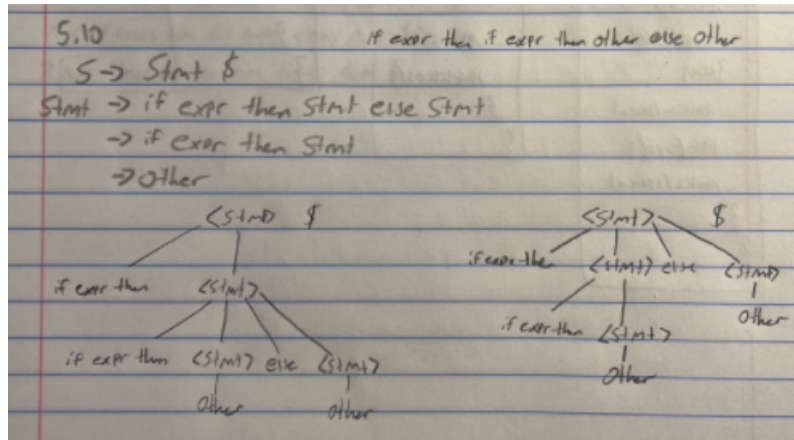 5.10
if expr then if expr then other else other
S -> Stmt $
Stmt -> if expr then Stmt else Stmt
-> if expr then Stmt
-> Other
<Stmt> $
<Stmt> $
if expr then <Stmt> else <Stmt>
if expr then <Stmt>
Other
if expr then <Stmt>
if expr then <Stmt> else <Stmt>
Other
Other Other